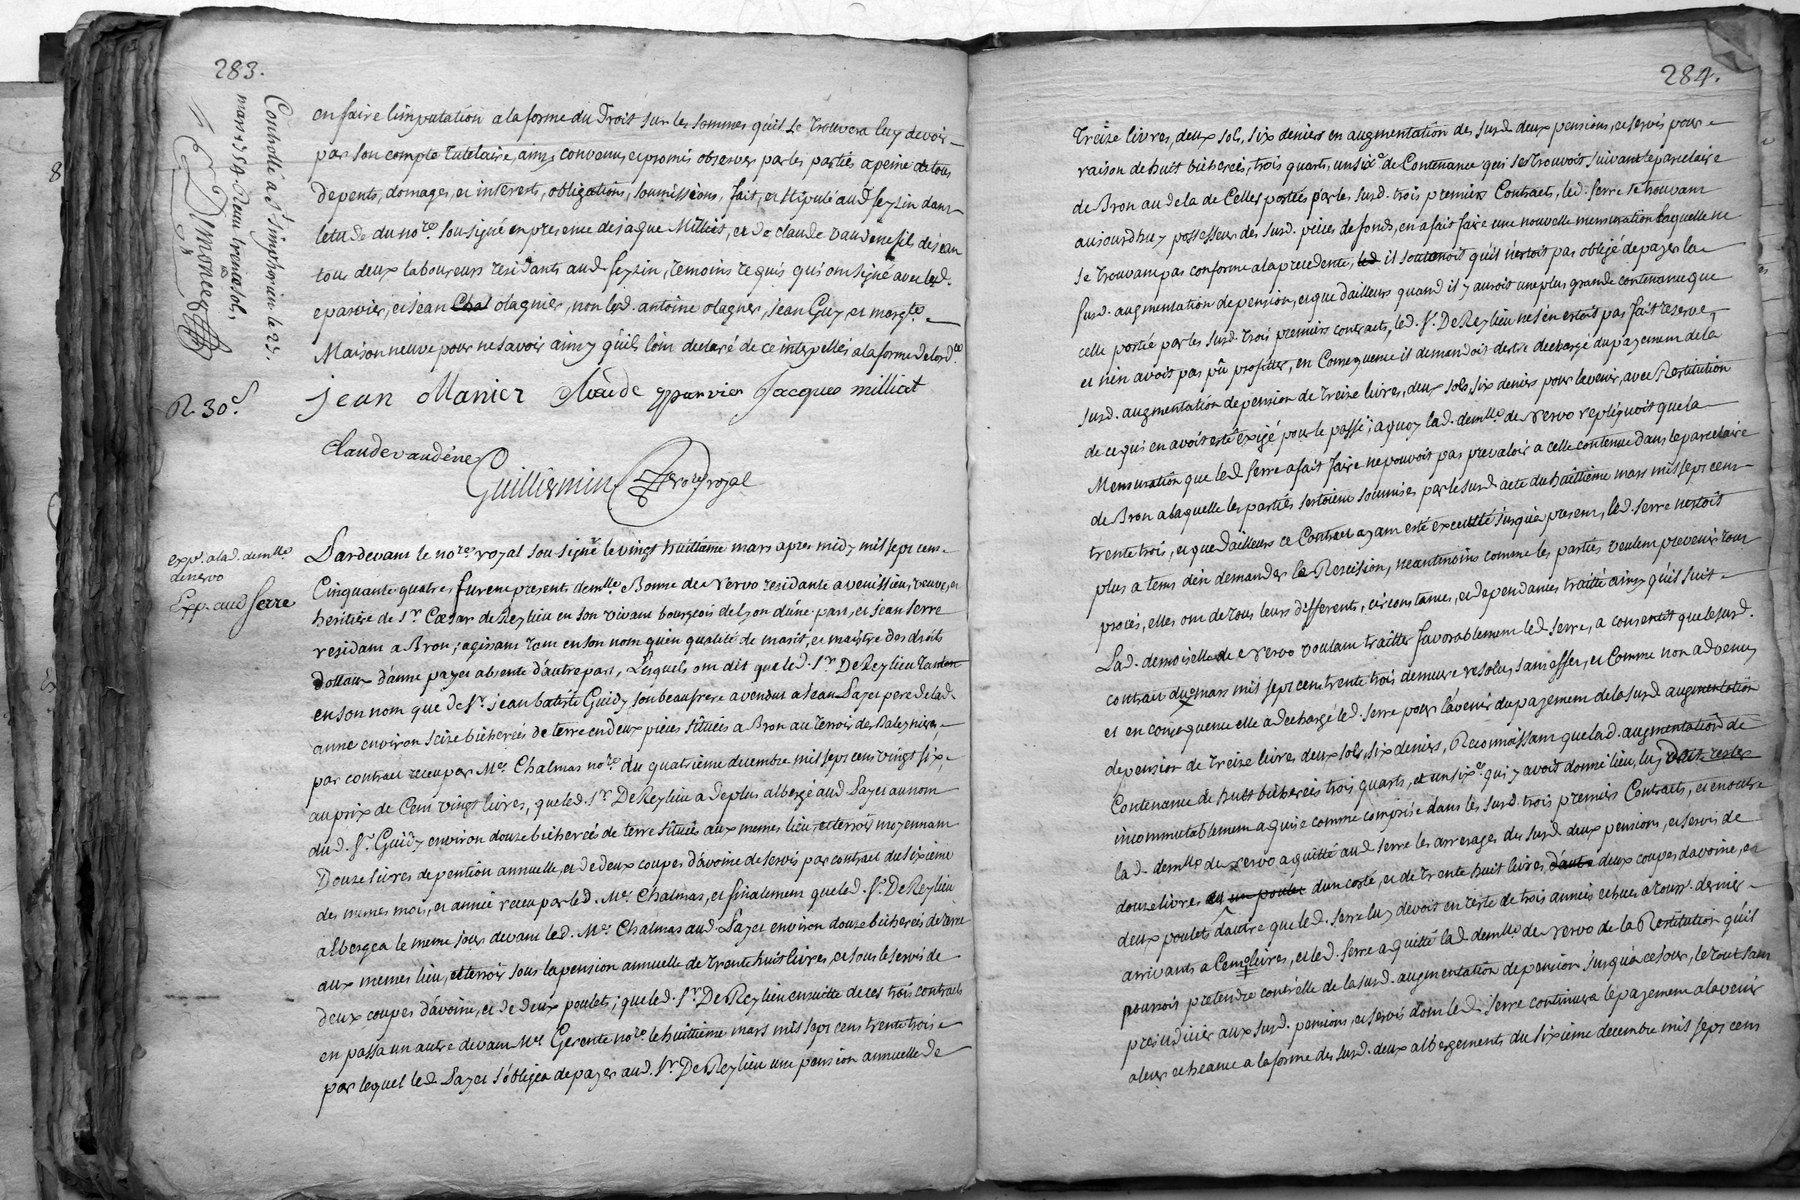 283.
Controllé a St simphorien le 23.
mars 1754. Reçu trente sols,
Demoncey
en faire limputation a la forme du Droit sur les sommes quil se trouvera luy devoir
par son compte tutelaire, ainsy convenu, et promis observer par les parties a peine de tous
depents, domages, et interents, obligations, soumissions, fait, et stipulé aud. feyzin dans
letude du nore. soussigné en presence de jaque Milliat, et de claude vaudene fil de jean
tous deux laboureurs residants aud. feyzin, temoins requis qui ont signé avec led.
eparvier, et jean Chal olagnier, non led. antoine olagner, jean Guy, et margte.
Maisonneuve pour ne savoir ainsy quils lont declaré de ce interpellés a la forme de lordce
R. 30s.
jean ollanier Claude epparvier Jacques milliat
claude vaudene
Guillermin no.re royal
exp. a lad. demlle
de nervo
Exp. aud. Serre
Pardevant le nore. royal soussigné le vingt huitiême mars apres midy mil sept cent
Cinquante quatre furent present demlle. Bonne de Nervo residante a venissieu, veuve, et
heritiere de Sr. Cæsar de Reylieu en son vivant bourgeois de Lyon d'une part, et jean Serre
residant a Bron, agissant tant en son nom qu'en qualité de marit, et maistre des droits
dottaux d'anne payet absente d'autre part, Lesquels ont dit que led. Sr. De Reylieu tant en
en son nom que de Sr. jean batiste Guidy son beaufrere a vendus a jean Payet pere de lad.
anne environ seize bicherées de terre en deux pieces scituées a Bron au terroir des Baleynieres,
par contract receu par Me. Chalmas nore. du quatrieme decembre mil sept cent vingt six,
au prix de Cent vingt livres, que led. Sr. De Reylieu a deplus albergé aud. Payet au nom
dud. Sr. Guidy environ douze bicherées de terre scituées aux memes lieu, et terroir moyennant
Douze livres de pention annuelle, et de deux coupes d'avoine de servis par contract du sixieme
des memes mois, et année receu par led. Me. Chalmas, et finalement que led. Sr. De Reylieu
albergea le meme jour devant led. Me. Chalmas aud. Payet environ douze bicherées de terre
aux memes lieu, et terroir sous la pension annuelle de trente huit livres, et sous le servis de
deux coupes d'avoine, et de deux poulets; que led. Sr. De Reylieu ensuitte de ces trois contracts
en passa un autre devant Me. Gerente nore. le huittieme mars mil sept cens trente trois
par lequel led. Payet s'obligea de payer aud. Sr. De Reylieu une pension annuelle de
284.
Treize livres, deux sols, six deniers en augmentation des susd. deux pensions, et servis pour
raison de huit bicherées, trois quarts, un sixe. de Contenance qui se trouvoit suivant le parcelaire
de Bron au dela de Celles portées par les susd. trois premiers Contracts, led. Serre se trouvant
aujourdhuy possesseur des susd. pieces de fonds, en a fait faire une nouvelle mensuration laquelle ne
se trouvant pas conforme a la precedente, led il soutenoit qu'il n'estoit pas obligé de payer la
susd. augmentation de pension, et que dailleurs quand il y auroit une plus grande contenance que
celle portée par les susd. trois premiers contracts, led. Sr. De Reylieu ne s'en estoit pas fait reserve,
et n'en avoit pas pû profiter, en Consequence il demandoit d'estre dechargé du payement de la
susd. augmentation de pension de treize livres, deux sols, six deniers pour lavenir, avec Restitution
de ce qui en avoit esté exigé pour le passé; a quoy lad. demlle. de nervo repliquoit que la
Mensuration que led. Serre a fait faire ne pouvoit pas prevaloir a celle contenue dans le parcelaire
de Bron a laquelle les parties s'estoient soumises par le susd. acte du huittième mars mil sept cent
trente trois, et que dailleurs ce Contract ayant esté executté jusqu'a present, led. Serre n'estoit
plus a tems d'en demander la Rescision, neantmoins comme les parties veulent prevenir tout
procés, elles ont de tous leurs differents, circonstances, et dependances traitté ainsy qu'il suit
Lad. demoiselle de nervo voulant traitter favorablement led. Serre, a consentit que le susd.
contract du mars mil sept cent trente trois demeure resolu, sans effet, et Comme non advenu,
et en consequence elle a dechargé led. Serre pour l'avenir du payement de la susd. augmentation
de pension de treize livres deux sols, six deniers, Reconnoissant que lad. augmentation de
Contenance de huit bicherées trois quarts, et un sixe. qui y avoit donné lieu, luy doit rester
incommutablement aquise comme comprise dans les susd. trois premiers Contracts, et en outre
lad. demlle. de nervo a quitté aud. Serre les arrerages des susd. deux pensions, et servis de
douze livres et un poulet d'un costé, et de trente huit livres d'autre deux coupes d'avoine, et
deux poulets d'autre que led. Serre luy devoit en reste de trois années echues a touss. dernier
arrivants a Cent livres, et led. Serre a quitté lad. demlle. de nervo de la Restitution qu'il
pourroit pretendre contr'elle de la susd. augmentation de pension jusqu'a ce jour, le tout sans
prejudicier aux susd. pensions, et servis dont led. Serre continuera le payement a lavenir
a leur echeance a la forme des susd. deux albergements du sixieme decembre mil sept cent